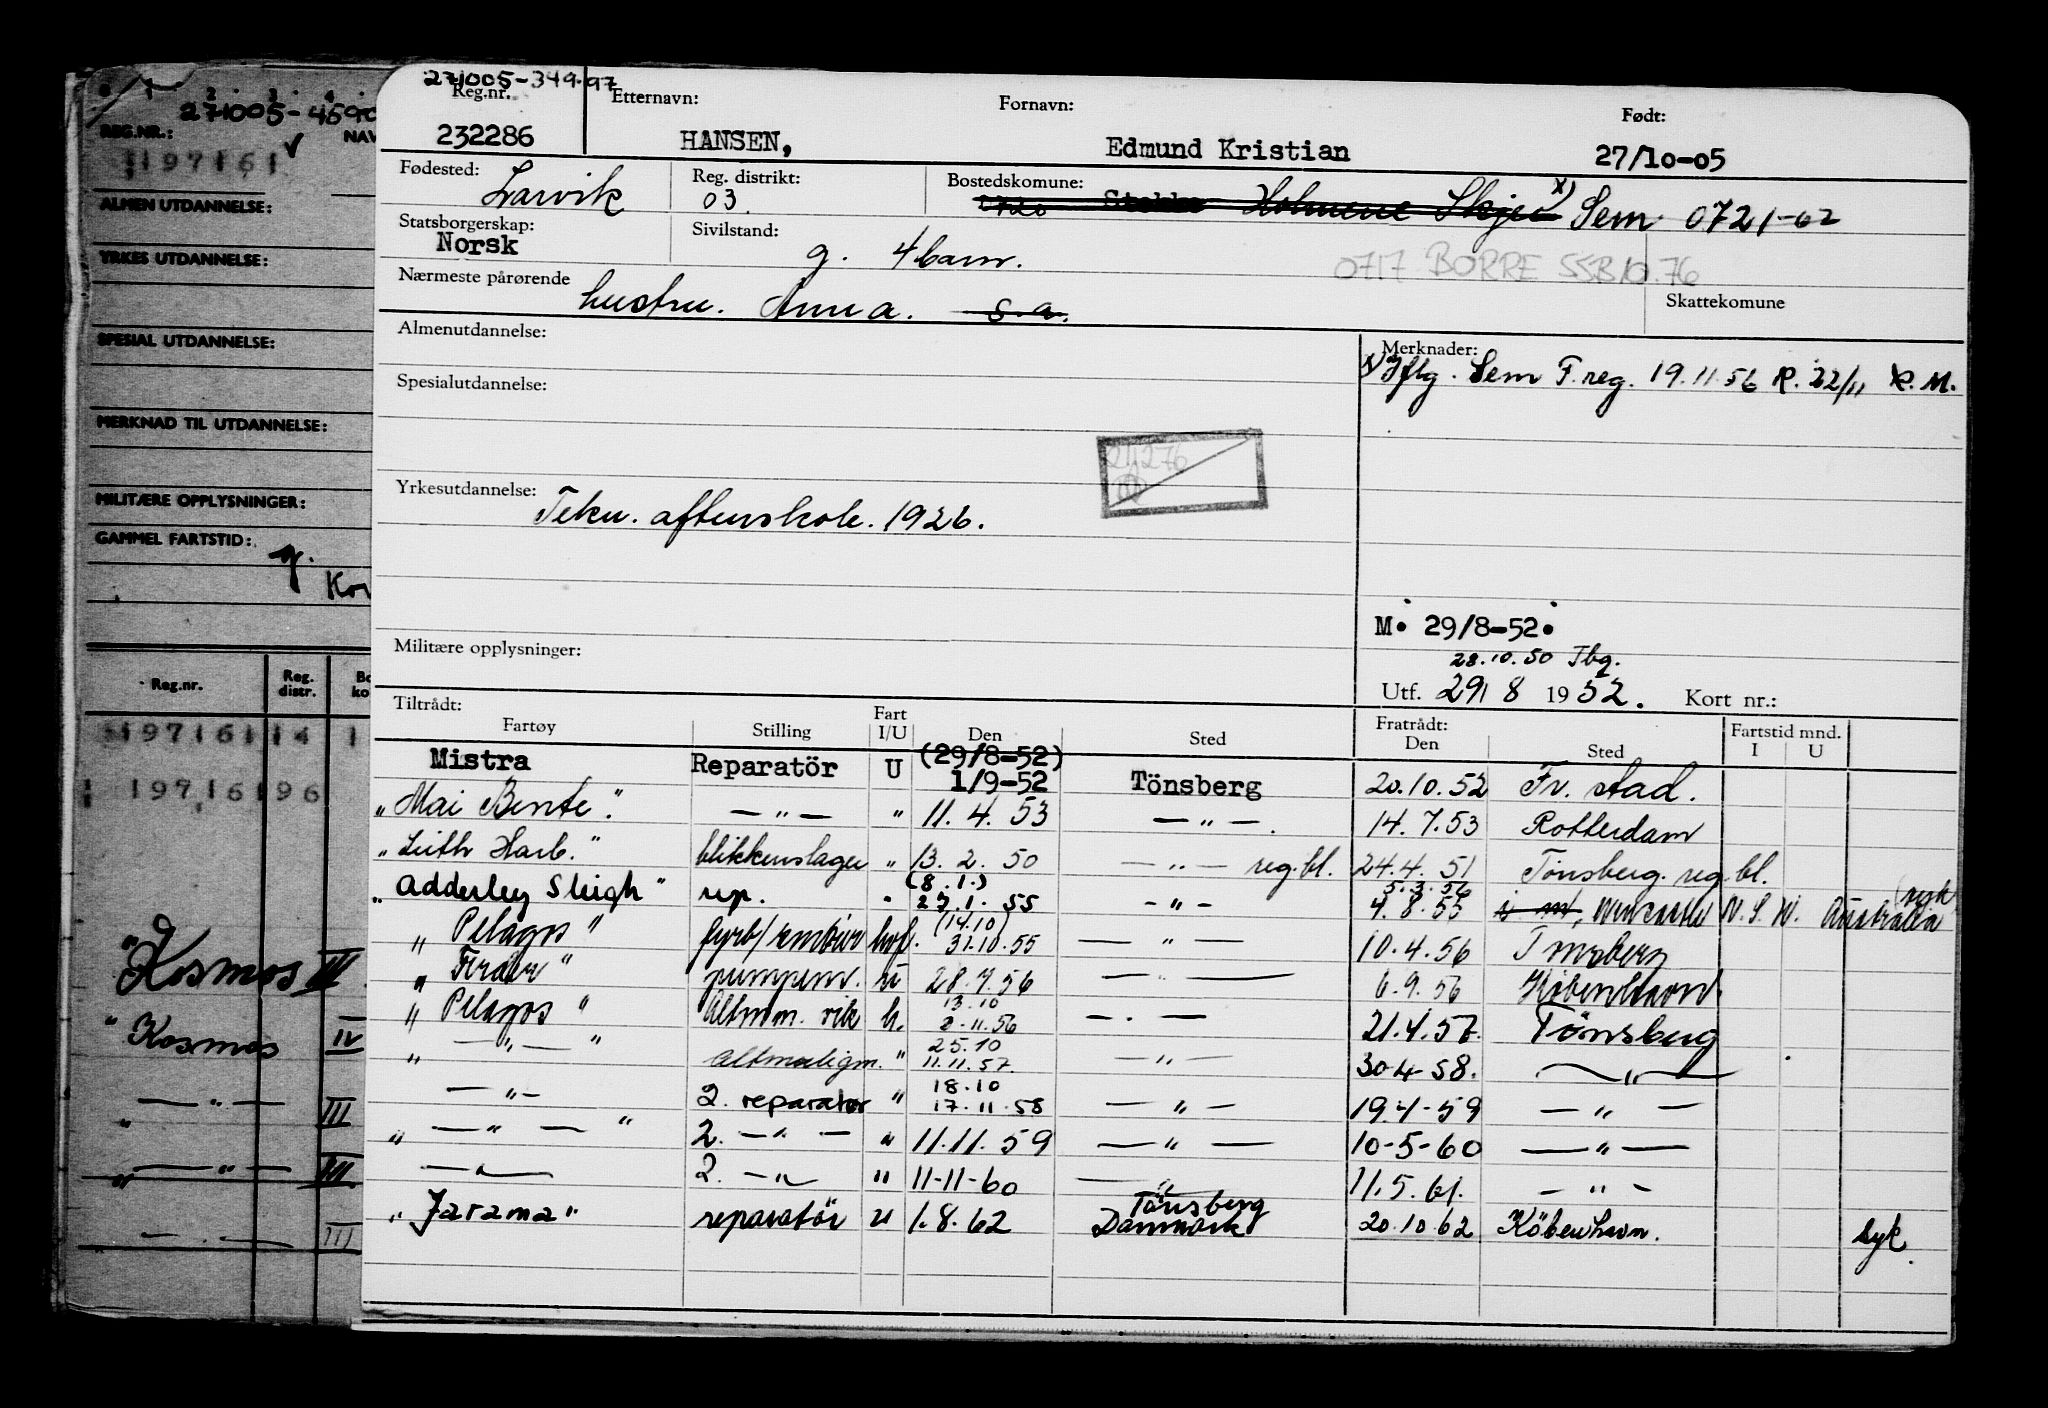 271005-4590
REG.NR.: NAV
197161 ✓
ALMEN UTDANNELSE:
YRKES UTDANNELSE:
SPESIAL UTDANNELSE:
MERKNAD TIL UTDANNELSE:
MILITÆRE OPPLYSNINGER:
GAMMEL FARTSTID:
Reg.nr. Reg. distr.
197161 14 1
197161 96
"Kosmos III
" Kosmos IV
— " — III
" — " — III
— . — III
271005-349.97
Reg.nr. Etternavn: Fornavn: Født:
232286 HANSEN, Edmund Kristian 27/10-05
Fødested: Larvik Reg. distrikt: 03 Bostedskomune: 1720 Stokke Holmene Skjee x) Sem 0721-62
Statsborgerskap: Norsk Sivilstand: g. 4 barn.
0717 BORRE SSB 10.76
Nærmeste pårørende hustru. Anna. s.a. Skattekomune
Almenutdannelse: Merknader:
x) Iflg. Sem F.reg. 19.11.56 R. 22/11 K.M.
Spesialutdannelse:
Yrkesutdannelse: Tekn. aftenskole. 1926.
M. 29/8-52.
28.10.50 Tbg.
Militære opplysninger:
Utf. 29/8 1952. Kort nr.:
Tiltrådt: Fratrådt: Fartstid mnd.
Fartøy Stilling Fart I/U Den Sted Den Sted I U
Mistra Reparatör U (29/8-52) 1/9-52 Tönsberg 20.10.52 Fr. stad.
"Mai Bente." — " — " 11.4.53 — " —. 14.7.53 Rotterdam
"Leith Harb." blikkenslager " 13.2.50 — " — reg.bl. 24.4.51 Tønsberg. reg.bl.
"Adderley Sleigh" rep. " (8.1.) 27.1.55 — " — 5.3.56 4.8.55 N.S.W. Australia (syk
" Pelagos " hvf. (14.10) 31.10.55 — " — 10.4.56 Tønsberg
" Færder " pumpem. u 28.7.56 — " — 6.9.56 København
" Pelagos " h. 13.10 2.11.56 — . — 21.4.57. Tønsberg
" — " — " altmuligm. " 25.10 11.11.57. — " — 30-4-58. — " —
— " — 2. reparatør " 18.10 17.11.58 — " — 19.4-59 — " —
" — " — " 2. — " — " 11.11.59 — " — 10-5-60 — " —
— " — 2. — " — " 11-11-60 — " — 11.5.61. — " —
" Jarama" reparatör u 1.8.62 Tönsberg Danmark 20.10.62 Köbenhavn. syk.